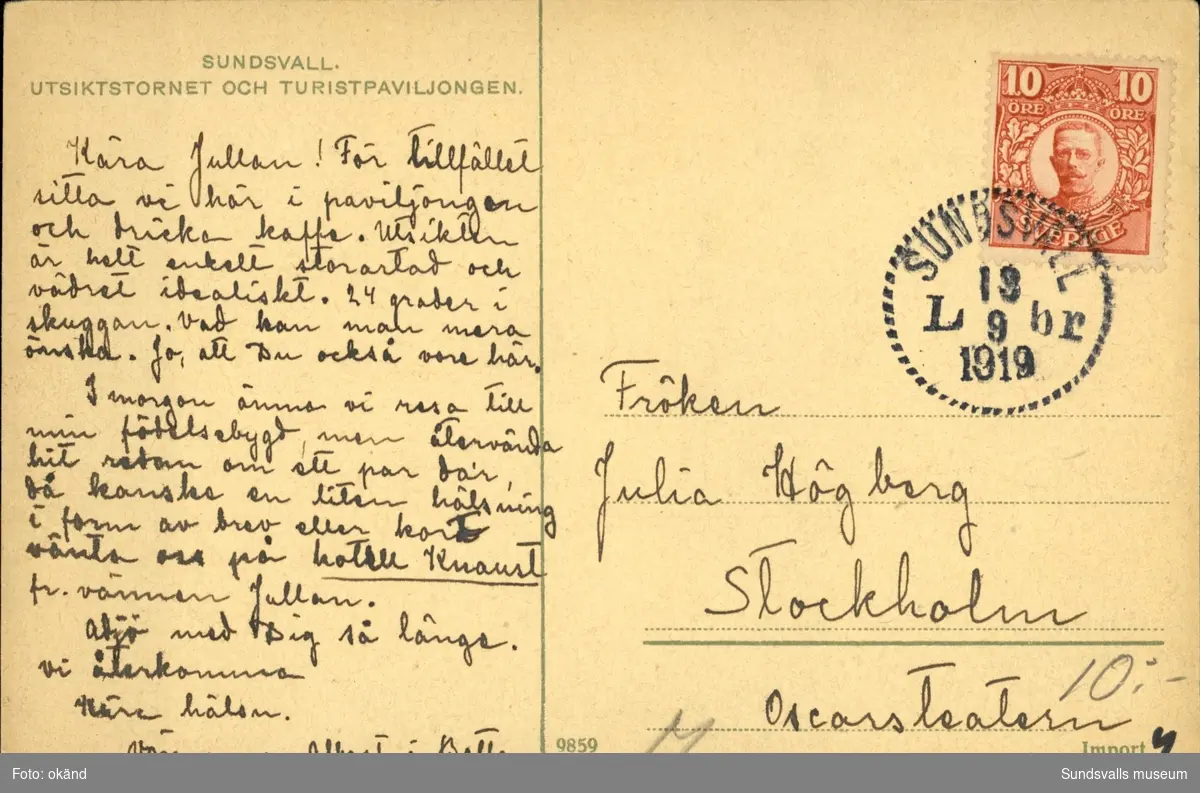 SUNDSVALL.
UTSIKTSTORNET OCH TURISTPAVILJONGEN.
Kära Jullan! För tillfället
sitta vi här i paviljongen
och dricka kaffe. Utsikten
är helt enkelt storartad och
vädret idealiskt. 24 grader i
skuggan. Vad kan man mera
önska. Jo, att Du också vore här.
I morgon ämna vi resa till
min födelsebygd, men återvända
hit redan om ett par dar,
då kanske en liten hälsning
i form av brev eller kort
vänta oss på hotell Knaust
fr. vännen Jullan.
Adjö med Dig så länge.
Vi återkomma
Kära hälsn.
Albert
10 10
ÖRE ÖRE
SVERIGE
SUNDSVALL
19
L 9 br
1919
Fröken
Julia Högberg
Stockholm
10:-
Oscarsteatern
9859
Import
Foto: okänd
Sundsvalls museum